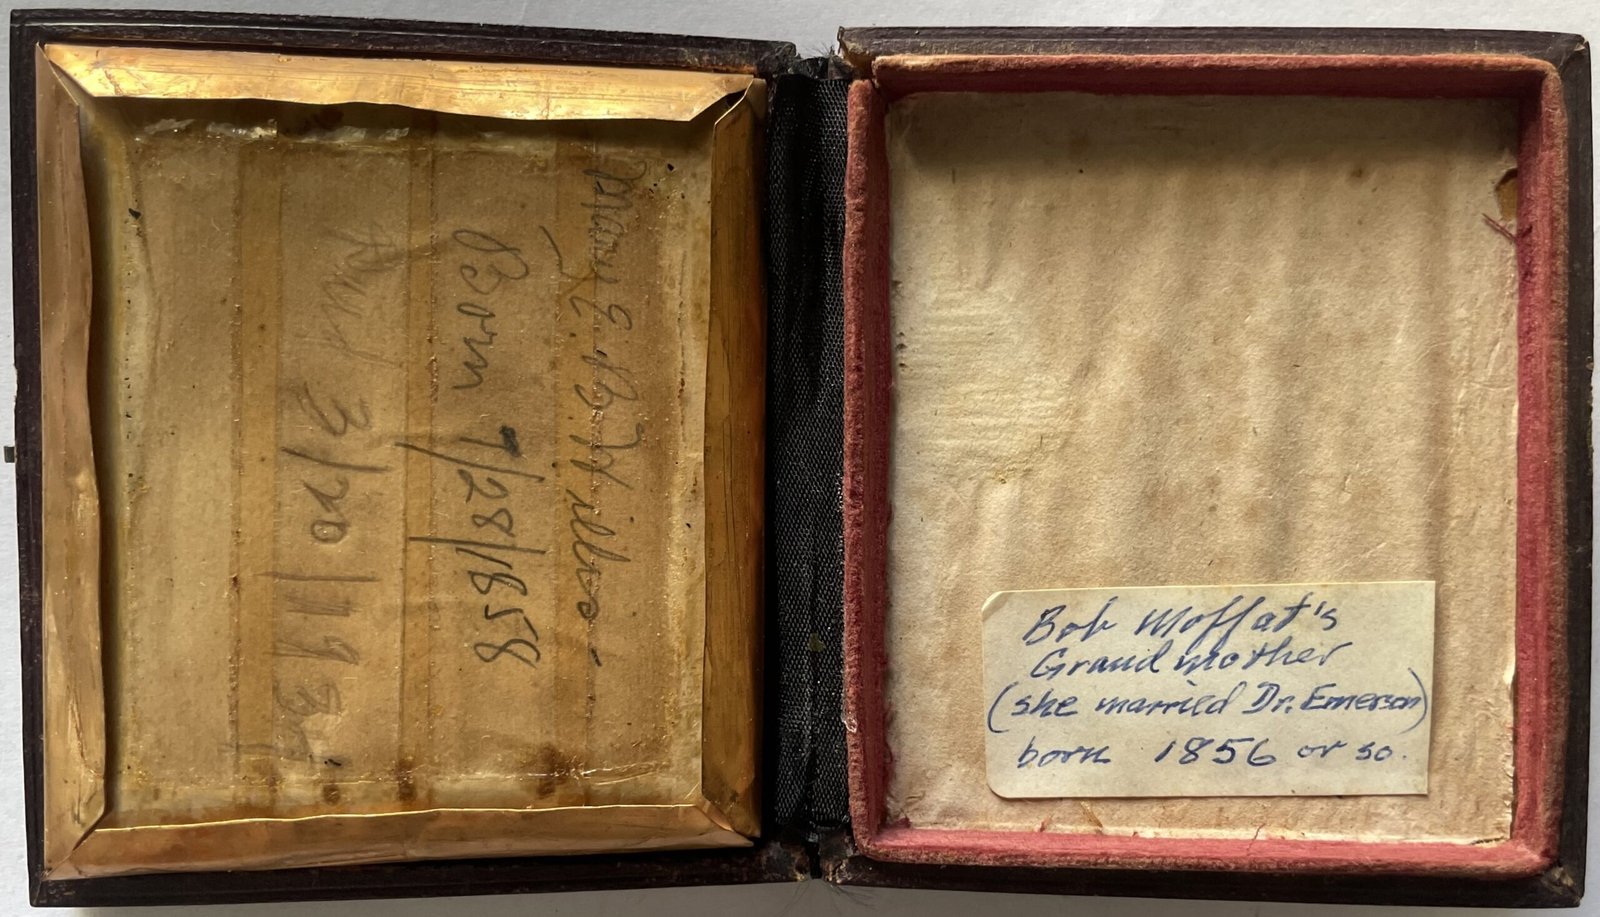 Mary E. B. Willis
Born 7/28/1858
Died 3/20/1934
Bob Moffat's
Grand mother
(she married Dr. Emerson)
born 1856 or so.